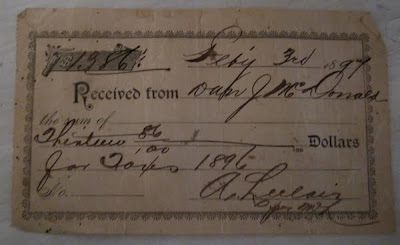 $ 13.86/ Feby 3rd 1897
Received from Dan J McDonald
the sum of
Thirteen 86/100 Dollars
for Taxes 1896
No.
A.